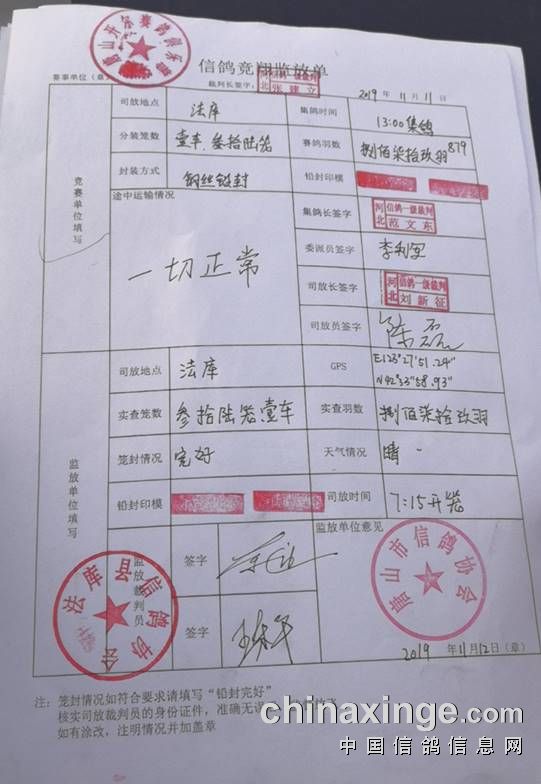 信鸽竞翔监放单
赛事单位（章）
裁判长签字：
河北 张建立
2019 年 11 月 11 日
竞赛单位填写
司放地点 法库 集鸽时间 13:00集鸽
分装笼数 壹车.叁拾陆笼 赛鸽羽数 捌佰柒拾玖羽 879
封装方式 钢丝铅封 铅封印模
途中运输情况 集鸽长签字 河北 信鸽一级裁判 范文东
一切正常
委派员签字
司放长签字 河北 信鸽一级裁判 刘新征
司放员签字 陈磊
监放单位填写
司放地点 法库 GPS E123°27'51.24"
N42°33'58.93"
实查笼数 叁拾陆笼壹车 实查羽数 捌佰柒拾玖羽
笼封情况 完好 天气情况 晴
铅封印模 司放时间 7:15开笼
监放裁判员 签字 监放单位意见
签字
法库县信鸽协会
唐山市信鸽协会
2019 年 11 月 12 日（章）
注：笼封情况如符合要求请填写“铅封完好”
核实司放裁判员的身份证件，准确无误
如有涂改，注明情况并加盖章
chinaxinge.com
中国信鸽信息网